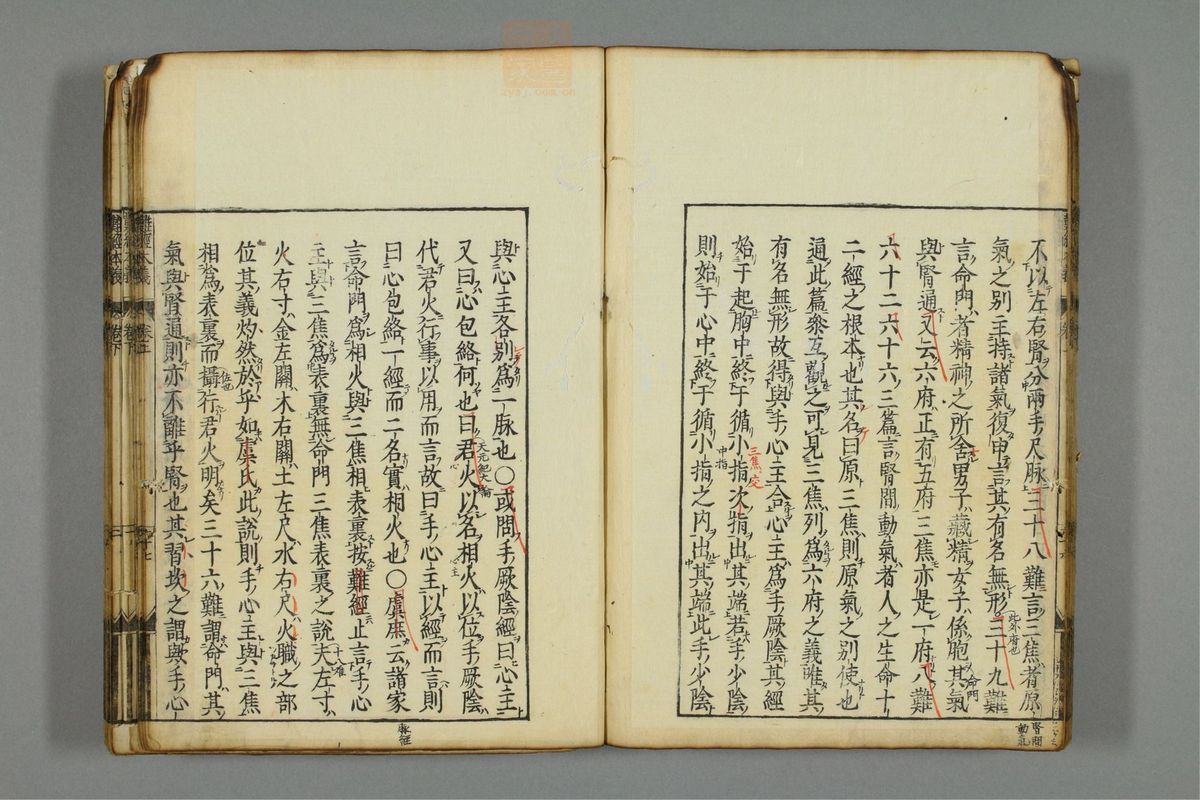 不以左右腎分兩手尺脉三十八難言三焦者原
氣之別主持諸氣復申言其有名無形三十九難
言命門者精神之所舍男子藏精女子係胞其氣
與腎通又云六府正有五府三焦亦是一府八難
六十二六十六三篇言腎間動氣者人之生命十
二經之根本也其名曰原三焦則原氣之別使也
通此篇參互觀之可見三焦列爲六府之義唯其
有名無形故得與手心主合心主爲手厥陰其經
始于起胸中終于循小指次指出其端若手少陰
則始于心中終于循小指之内出其端此手少陰
此外府也
命門
腎間動氣
三焦交
中指
與心主各別爲一脉也○或問手厥陰經曰心主
又曰心包絡何也曰君火以名相火以位手厥陰
代君火行事以用而言故曰手心主以經而言則
曰心包絡一經而二名實相火也○虞庶云諸家
言命門爲相火與三焦相表裏按難經止言手心
主與三焦爲表裏無命門三焦表裏之說夫左寸
火右寸金左關木右關土左尺水右尺火職之部
位其義灼然於乎如虞氏此說則手心主與三焦
相爲表裏而攝行君火明矣三十六難謂命門其
氣與腎通則亦不離乎腎也其習坎之謂與手心
天元紀大論
脉經
十難
難經本義
zysj.com.cn